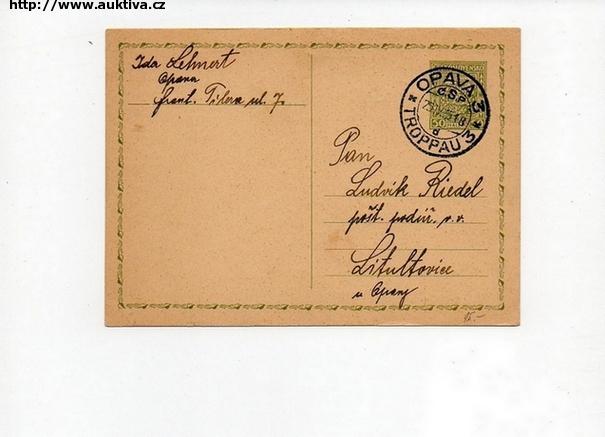 http://www.auktiva.cz
Ida Lehnert
Opava
Frant. ul. 7.
OPAVA 3
ČSP
TROPPAU 3
50
Pan
Ludvík Riedel
pošt. podúř. v. v.
Litultovice
u Opavy
15.-